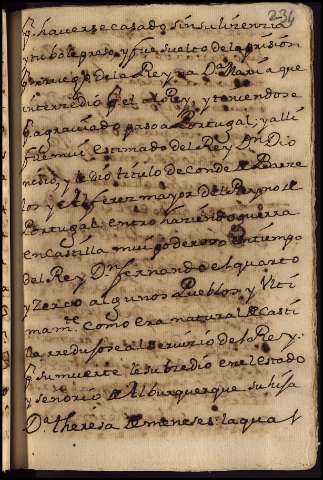 234
p.r haverse casado sin su lizenzia
y tubole preso, y fue suelto de la prision
por ruego de la Reyna D.a Maria que
interzedio por el al Rey, y teniendose
p.r agraviado paso a Portugal, y alli
fue mui estimado del Rey Dn Dio
nisio, y le dio titulo de Conde de Barze
los y Alferez mayor del Reyno de
Portugal: entro haziendo guerra
en Castilla mui poderoso en tiempo
del Rey Dn fernando el quarto
y zerco algunos Pueblos, y Ulti
mam.te como era natural de Casti
lla se reduso se al servizio de su Rey.
p.r su muerte le subzedio en el estado
y señorio de Alburquerque su hija
D.a Theresa de meneses la qual